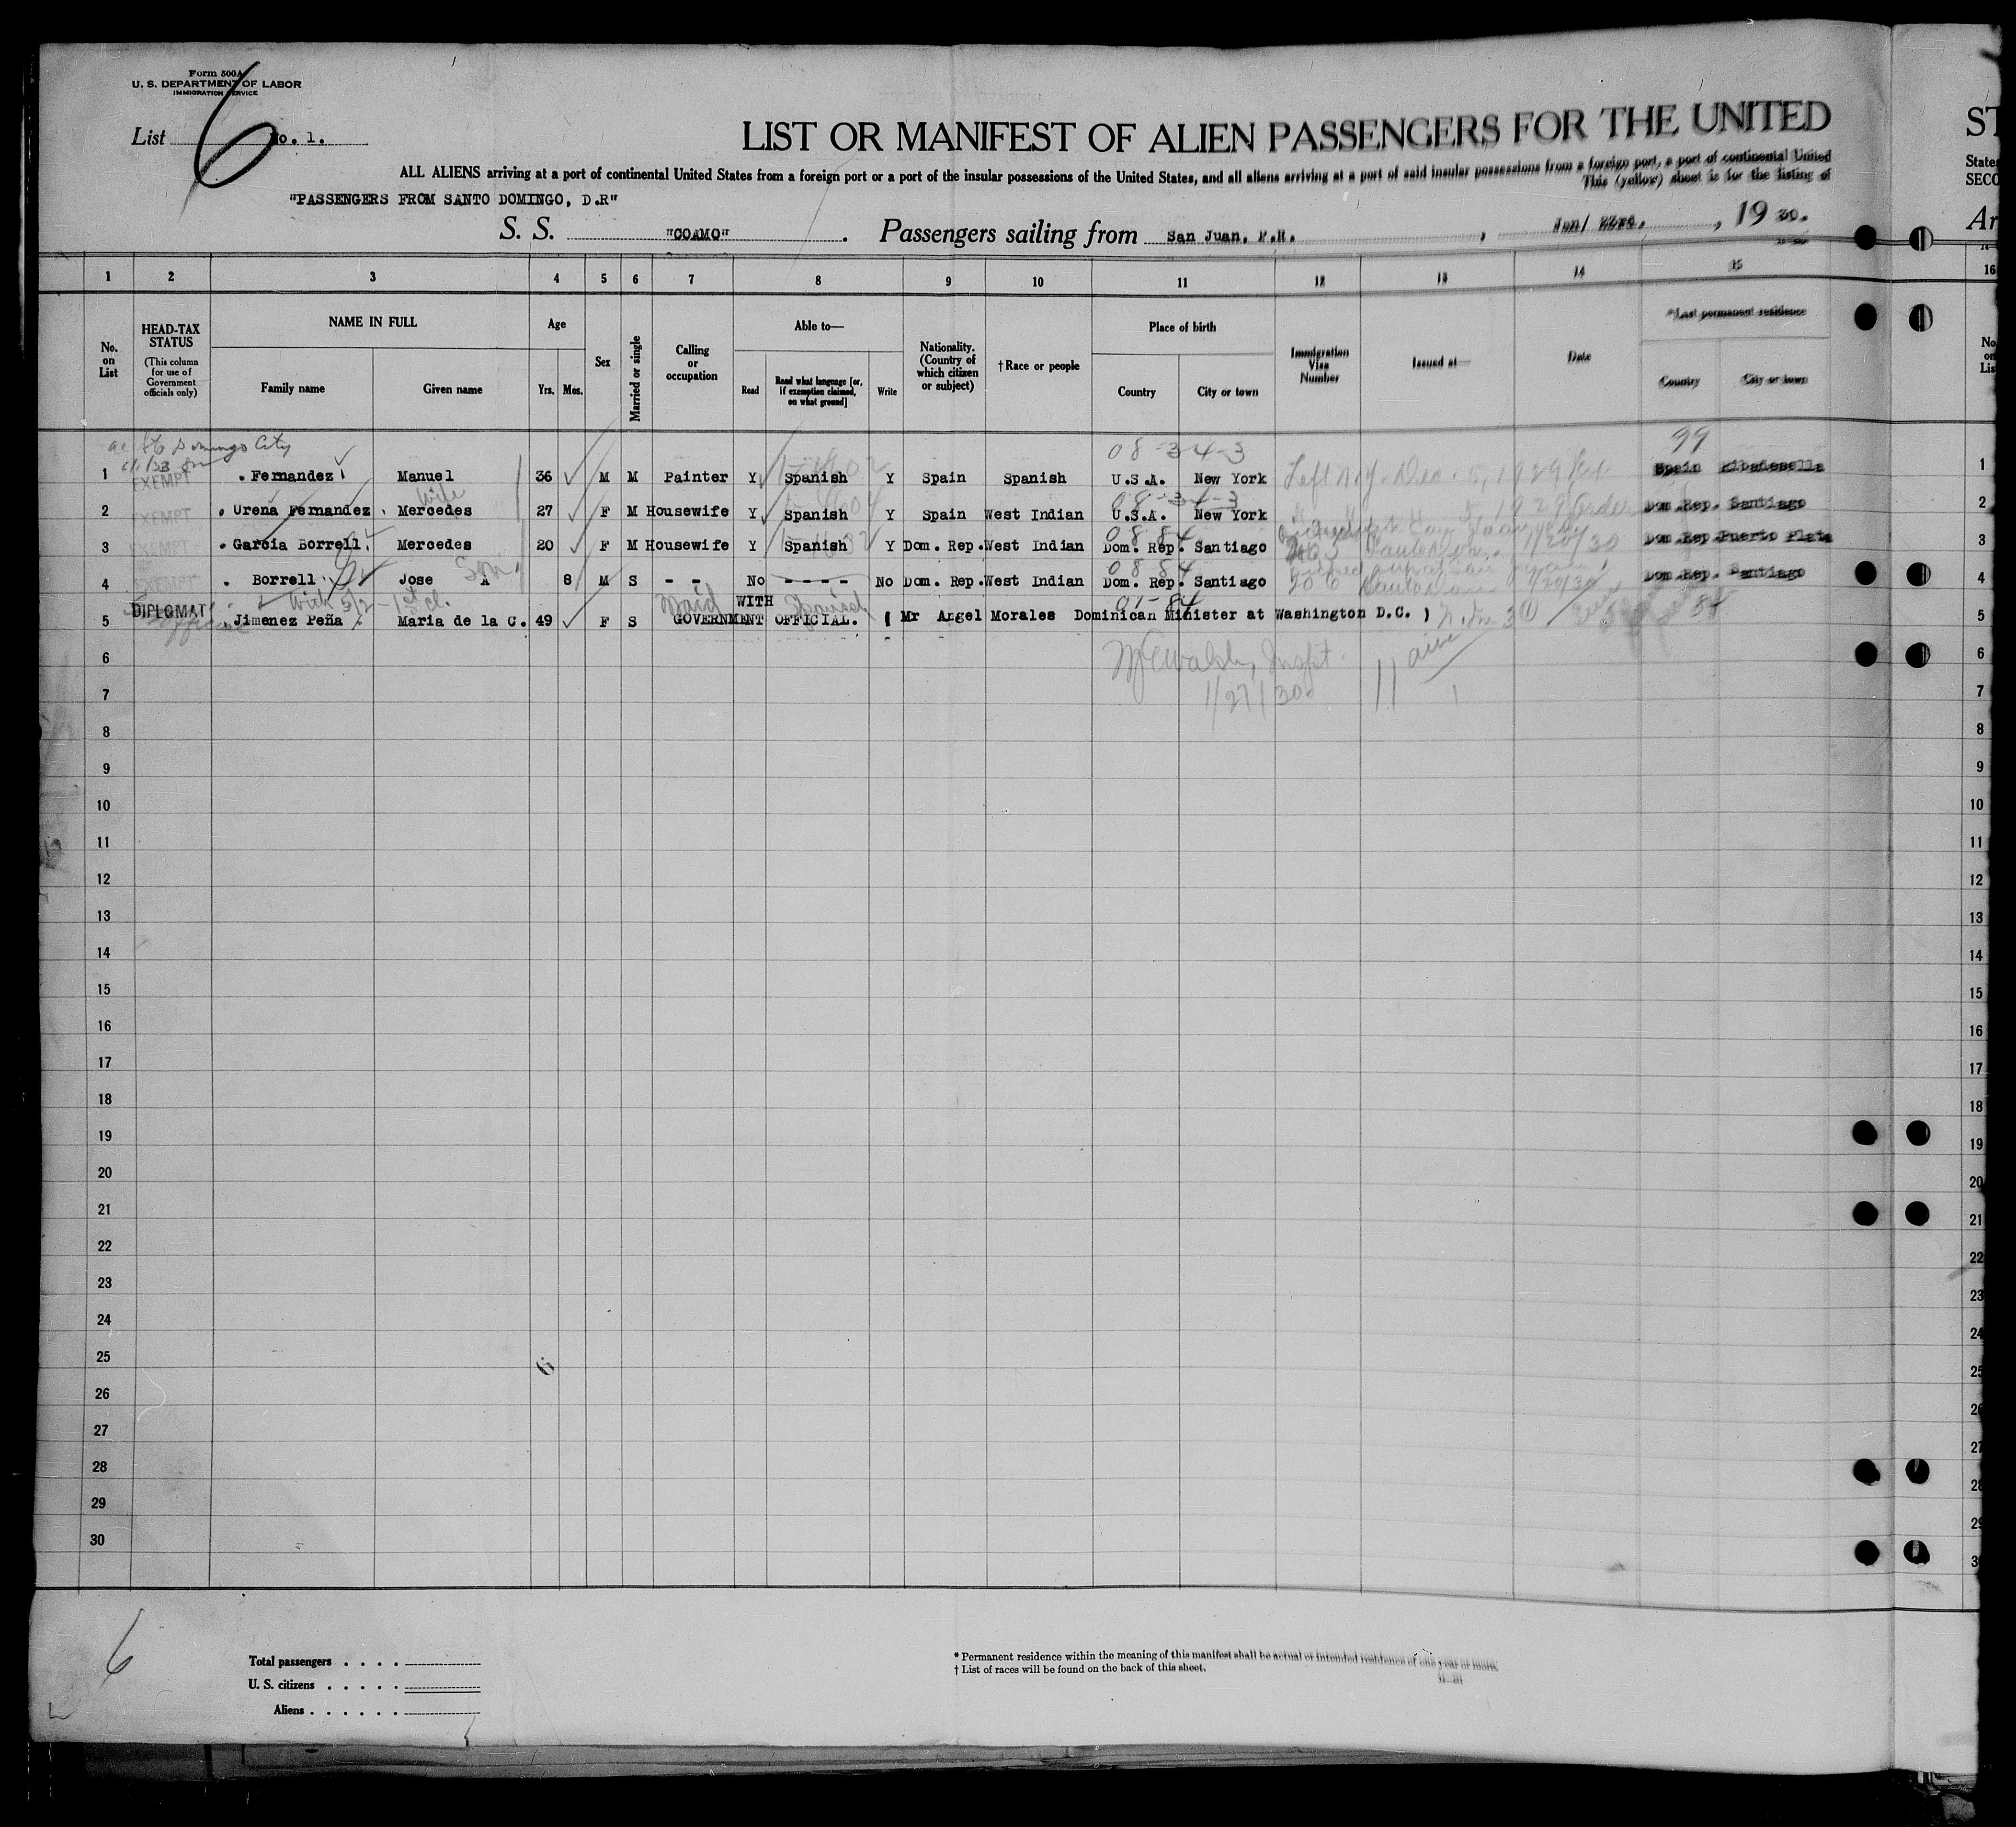 Form 500A
U. S. DEPARTMENT OF LABOR
IMMIGRATION SERVICE
List No. 1.
6
LIST OR MANIFEST OF ALIEN PASSENGERS FOR THE UNITED
ST
ALL ALIENS arriving at a port of continental United States from a foreign port or a port of the insular possessions of the United States, and all aliens arriving at a port of said insular possessions from a foreign port, a port of continental United
States
This (yellow) sheet is for the listing of
SECO
"PASSENGERS FROM SANTO DOMINGO, D.R"
S. S. "COAMO". Passengers sailing from San Juan, P.R., Jan/ 23rd., 1930.
Ar
1 2 3 4 5 6 7 8 9 10 11 12 13 14 15 16
No. on List
HEAD-TAX STATUS
(This column for use of Government officials only)
NAME IN FULL
Family name Given name
Age
Yrs. Mos.
Sex
Married or single
Calling or occupation
Able to—
Read
Read what language [or, if exemption claimed, on what ground]
Write
Nationality. (Country of which citizen or subject)
†Race or people
Place of birth
Country City or town
Immigration Visa Number
Issued at—
Date
*Last permanent residence
Country City or town
No on Lis
Domingo City
08-3-4-3
99
1 EXEMPT Fernandez Manuel 36 M M Painter Y Spanish Y Spain Spanish U.S.A. New York Left N.Y. Dec. 5, 1929 Spain Ribadesella 1
Wife
08-3-4-3
2 EXEMPT Urena Fernandez Mercedes 27 F M Housewife Y Spanish Y Spain West Indian U.S.A. New York 1929 Dom.Rep. Santiago 2
08 84
3 EXEMPT Garcia Borrell Mercedes 20 F M Housewife Y Spanish Y Dom. Rep. West Indian Dom. Rep. Santiago 1/20/30 Dom.Rep. Puerto Plata 3
Son
08 84
4 EXEMPT Borrell Jose A 8 M S - - No - - - - No Dom. Rep. West Indian Dom. Rep. Santiago 1/20/30 Dom.Rep. Santiago 4
With 5/2 - 1st cl.
Maid WITH Spanish 01-84
5 DIPLOMAT Jimenez Peña Maria de la C. 49 F S GOVERNMENT OFFICIAL. ( Mr Angel Morales Dominican Minister at Washington D.C. ) 84 5
6 6
Walsh, Inspt.
7 1/27/30 7
8 8
9 9
10 10
11 11
12 12
13 13
14 14
15 15
16 16
17 17
18 18
19 19
20 20
21 21
22 22
23 23
24 24
25 25
6
26 26
27 27
28 28
29 29
30 30
6
Total passengers
U. S. citizens
Aliens
* Permanent residence within the meaning of this manifest shall be actual or intended residence of one year or more.
† List of races will be found on the back of this sheet.